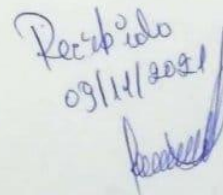 Recibido
09/11/2021